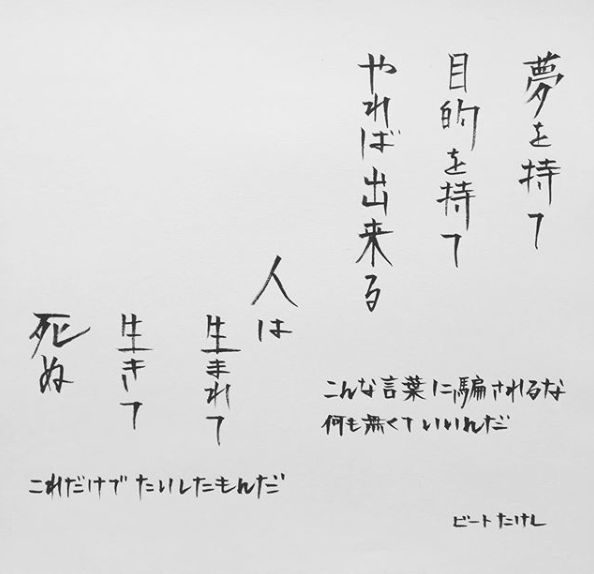 夢を持て
目的を持て
やれば出来る
こんな言葉に騙されるな
何も無くていいんだ
人は
生まれて
生きて
死ぬ
これだけでたいしたもんだ
ビートたけし